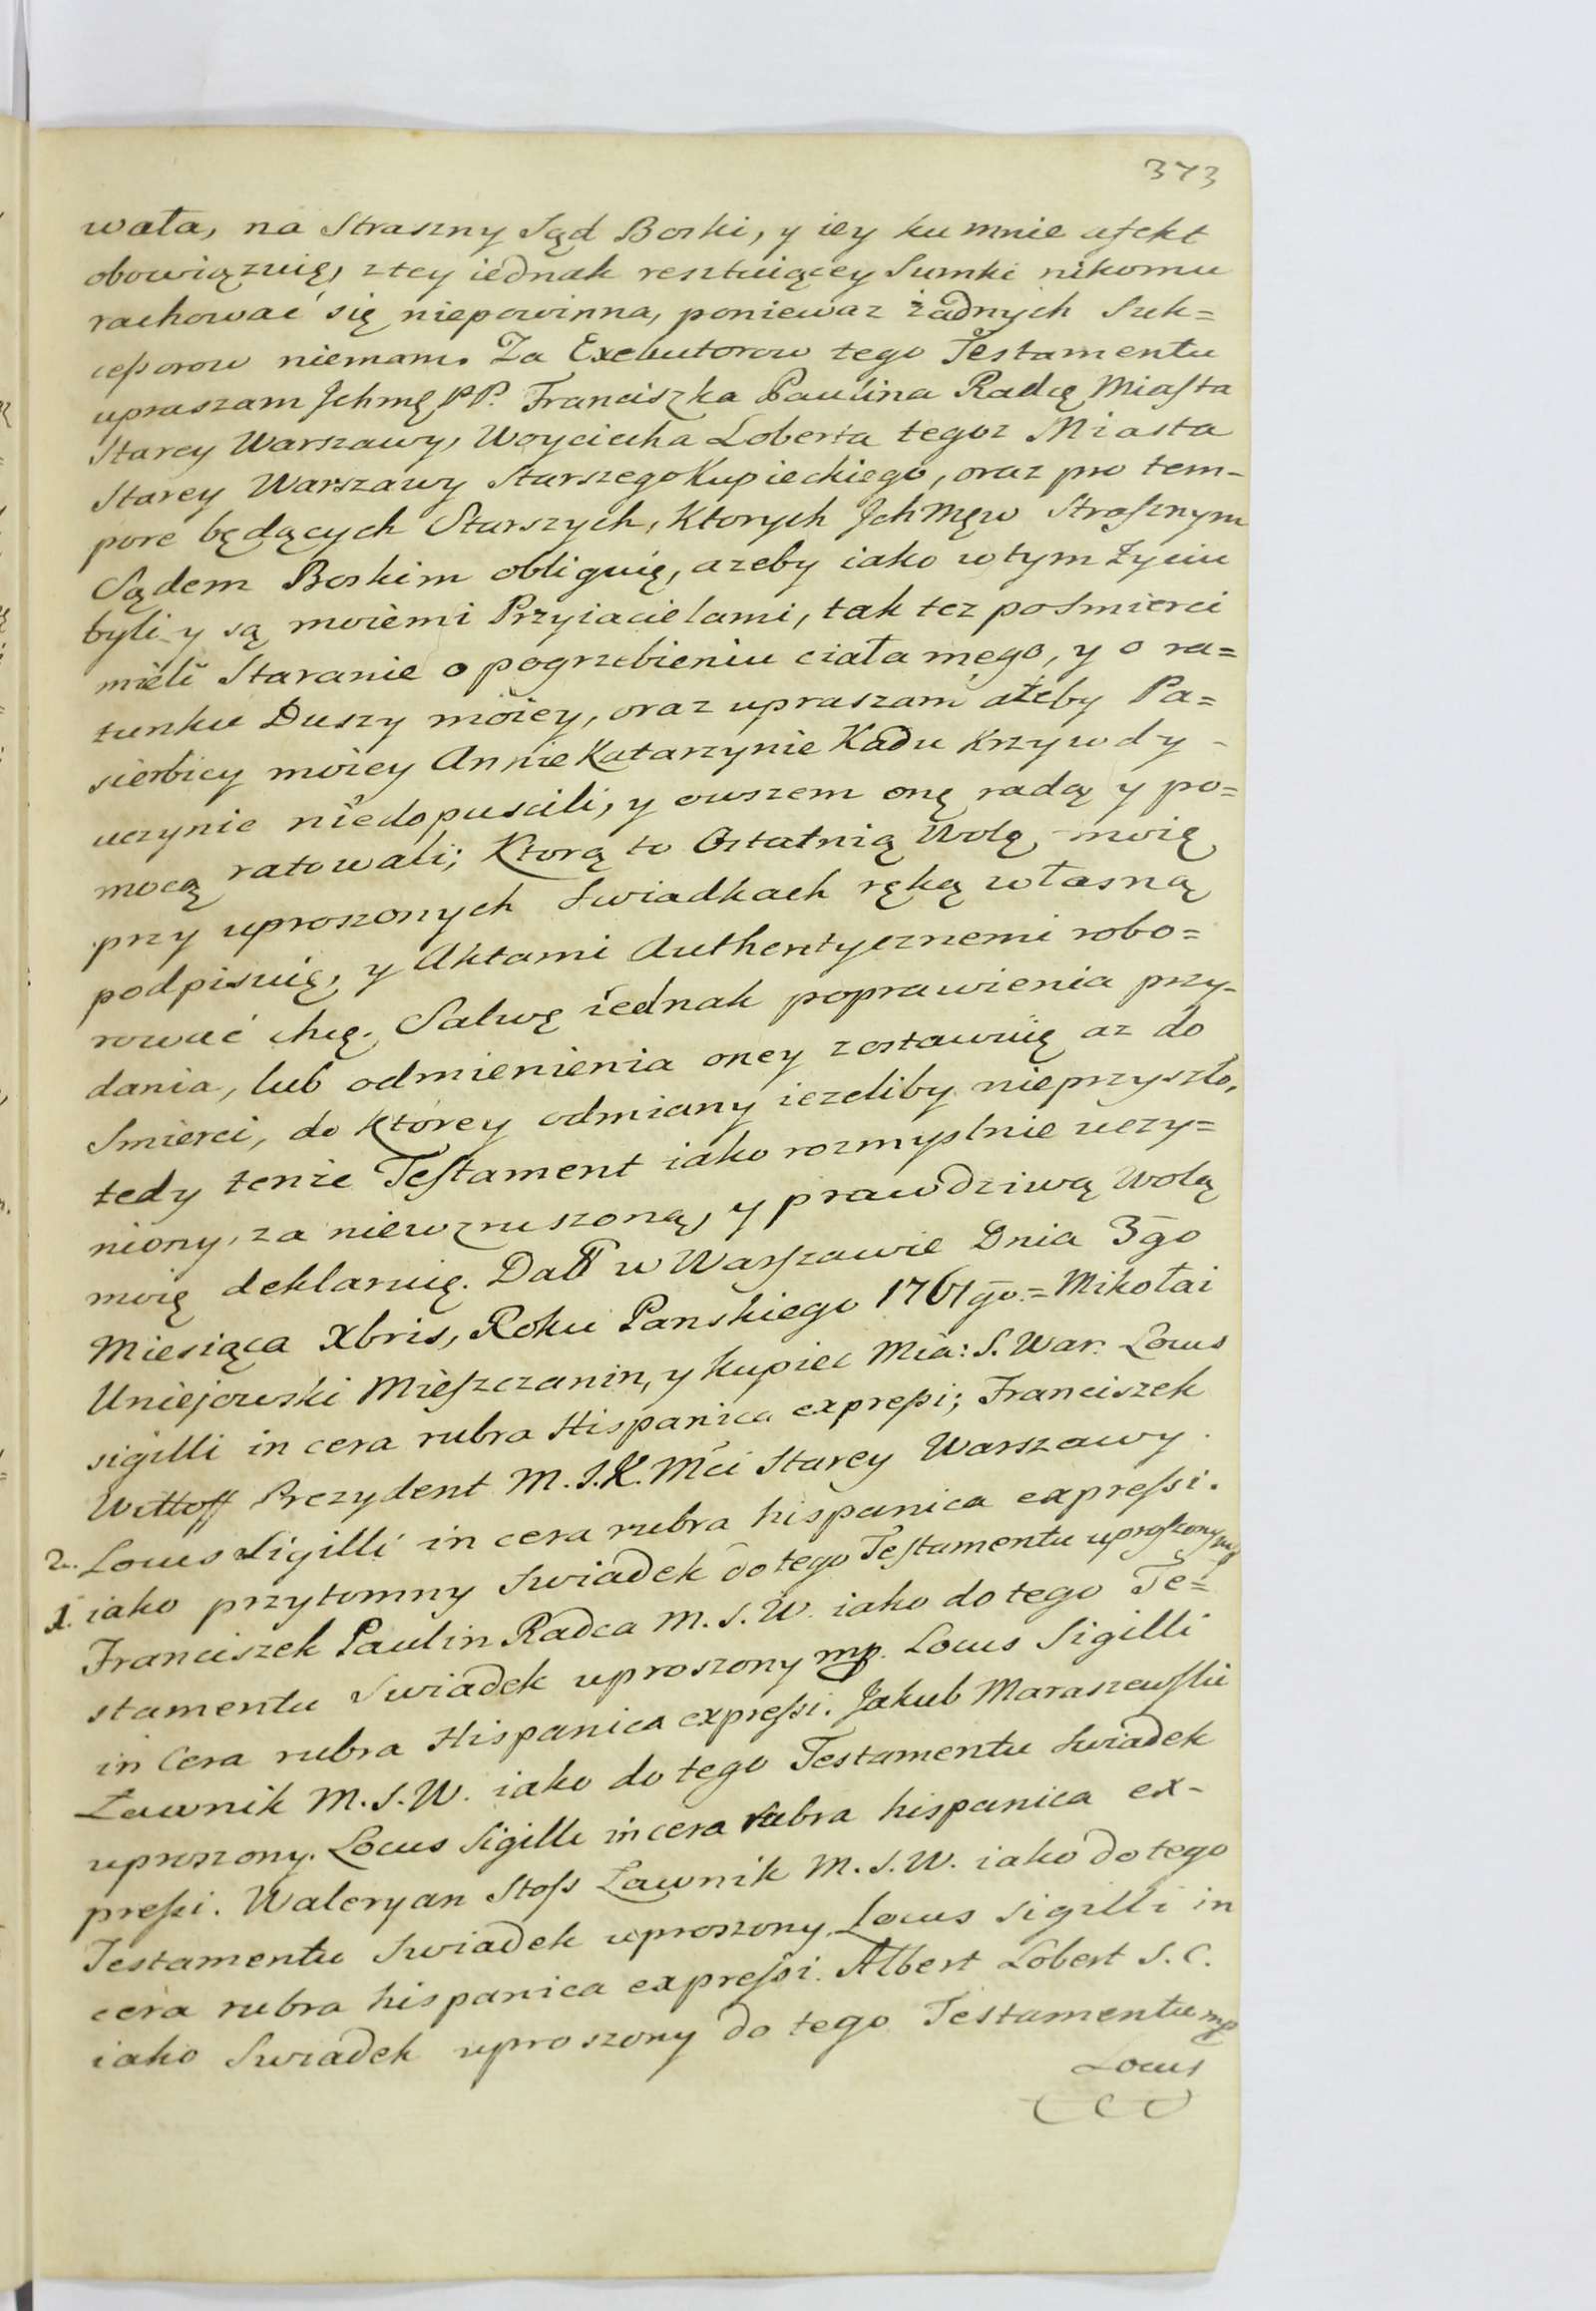 373
wała, na Straszny Sąd Boski, y iey ku mnie afekt
obowiązuię, z tey iednak resztuiącey Sumki nikomu
rachować się niepowinna, poniewaz żadnych Suk=
ceſsorow niemam. Za Exekutorow tego Testamentu
upraszam Jchmę PP. Franciszka Paulina Radcę Miaſta
Starey Warszawy, Woyciecha Loberta tegoz Miasta
Starey Warszawy Starszego Kupieckiego, oraz pro tem-
pore będących Starszych, Ktorych Jch Męw Straſznym
Sądem Boskim obliguię, azeby iako w tym Życiu
byli y są moiemi Przyiacielami, tak tez po Smierci
mieli Staranie o pogrzebieniu ciała mego, y o ra=
tunku Duszy moiey, oraz upraszam ażeby Pa=
sierbicy moiey Annie Katarzynie Kadu Krzywdy -
uczynie niedopuscili, y owszem onę radą y po=
mocą ratowali; Ktorą to Ostatnią Wolę moię
przy uproszonych Swiadkach ręką własną
podpisuię, y Aktami Authentycznemi robo=
rować chcę. Salwę iednak poprawienia przy-
dania, lub odmienienia oney zostawuię az do
Smierci, do którey odmiany iezeliby nieprzyszło,
tedy tenże Teſtament iako rozmyslnie uczy=
niony, za niewzruszoną, y prawdziwą Wolą
moię deklaruię. Datt w Warſzawie Dnia 3go
Miesiąca Xbris, Roku Panskiego 1761go. = Mikołai
Uniejowski Mieſzczanin, y Kupiec Mia: S. War. Locus
sigilli in cera rubra Hispanica expreſsi; Franciszek
Wittoff Prezydent M. J. K. Mći Starey Warszawy.
2. Locus Sigilli in cera rubra hispanica expreſsi.
1. iako przytomny Swiadek do tego Teſtamentu uproſzony mp
Franciszek Paulin Radca M. S. W. iako do tego Te=
stamentu Swiadek uproszony mp. Locus Sigilli
in Cera rubra Hispanica expreſsi. Jakub Maraszewſki
Ławnik M. S. W. iako do tego Testamentu Swiadek
uproszony. Locus Sigilli in cera rubra hispanica ex-
preſsi. Waleryan Stoſs Ławnik M. S. W. iako do tego
Testamentu Swiadek uproszony. Locus sigilli in
cera rubra hispanica expreſsi. Albert Lobert S. C.
iako Swiadek uproszony do tego Testamentu mp
Locus